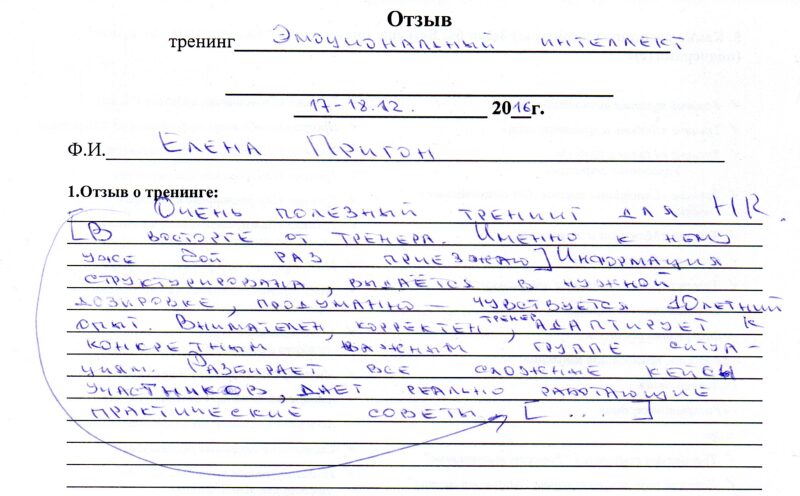 Отзыв
тренинг Эмоциональный интеллект
17-18.12. 2016г.
Ф.И. Елена Пригон
1.Отзыв о тренинге:
- Очень полезный тренинг для HR.
[В восторге от тренера. Именно к нему
уже 3ой раз приезжаю] Информация
структурирована, выдаётся в нужной
дозировке, продуманно – чувствуется 10летний
опыт. Внимателен, корректен, тренер адаптирует к
конкретным важным группе ситуа-
циям. Разбирает все сложные кейсы
участников, дает реально работающие
практические советы. [ ... ]